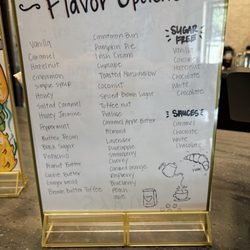 Flavor Options
Vanilla
Caramel
Hazelnut
Cinnamon
Simple Syrup
Honey
Salted Caramel
Honey Jasmine
Peppermint
Butter Pecan
Brown Sugar
Pistachio
Peanut Butter
Cookie Butter
Brown Butter Toffee
Cinnamon Bun
Pumpkin Pie
Irish Cream
Cupcake
Toasted Marshmallow
Coconut
Spiced Brown Sugar
Toffee nut
Praline
Caramel Apple Butter
Almond
Lavender
Pineapple
Strawberry
Cherry
Raspberry
Blueberry
Peach
SUGAR
FREE
Vanilla
Caramel
Hazelnut
Chocolate
White
Chocolate
SAUCES
Caramel
Chocolate
White
Chocolate